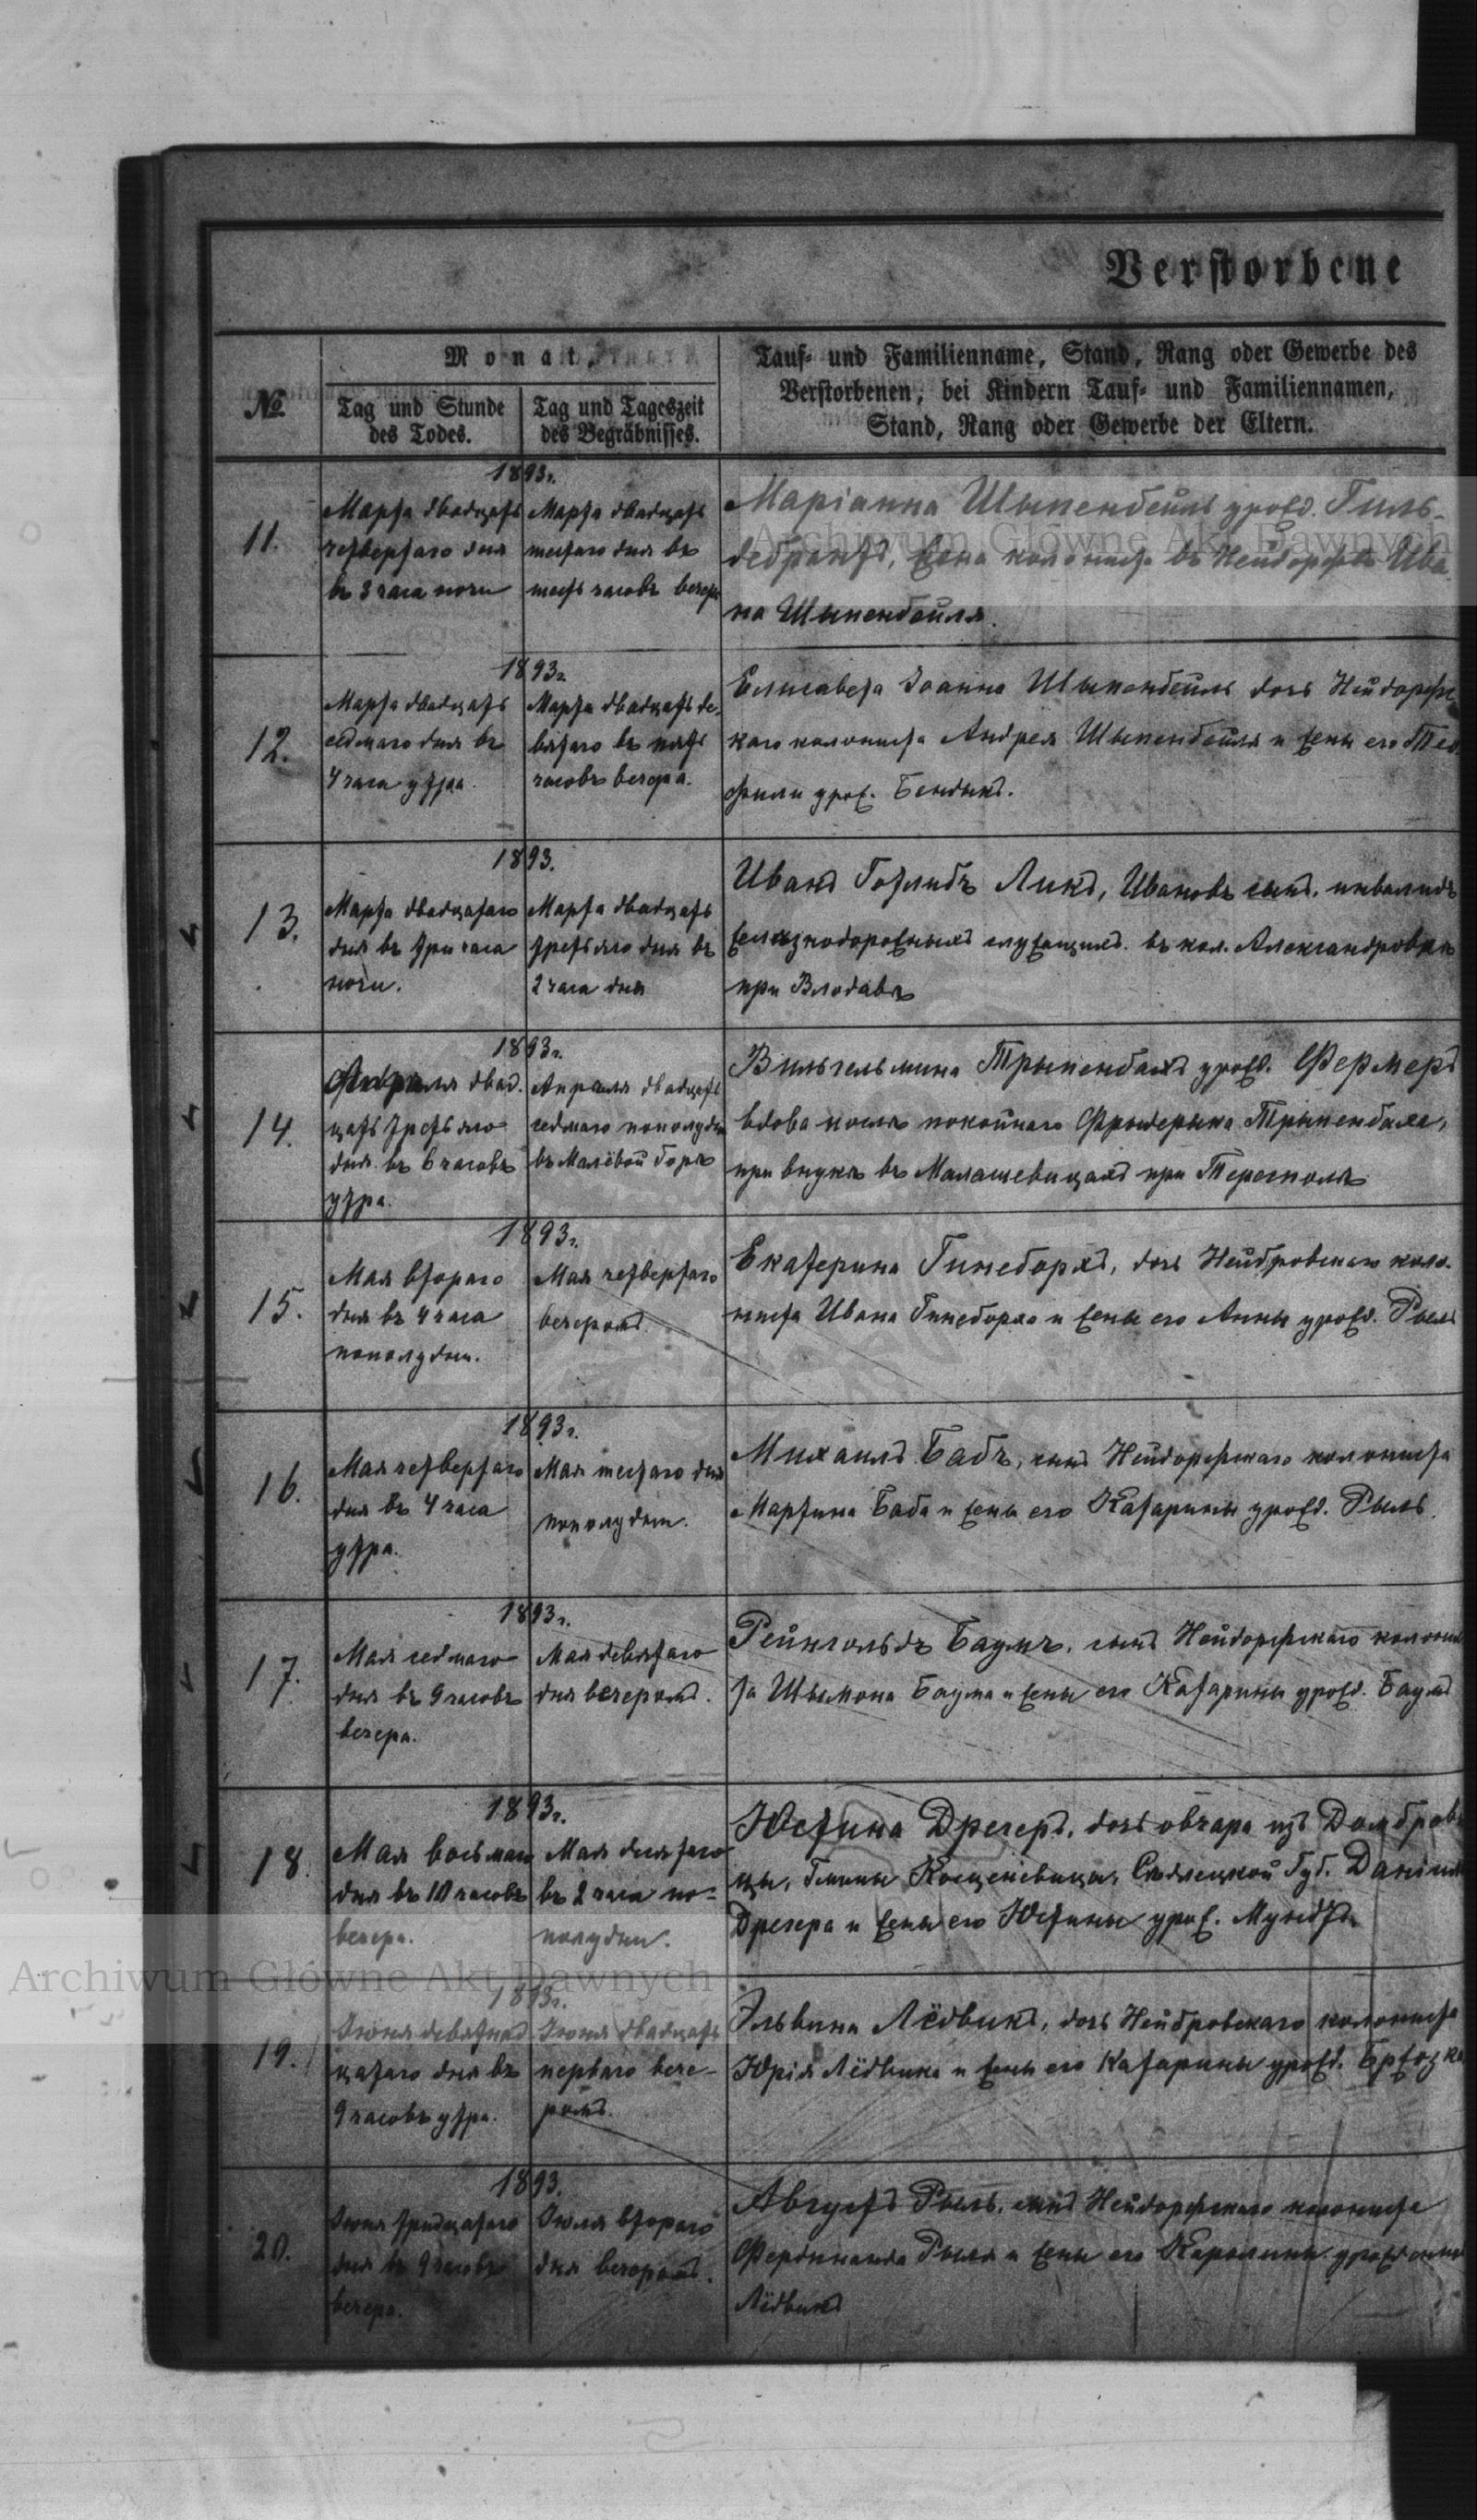 Verstorbene
№
Monat.
Tag und Stunde
des Todes.
Tag und Tageszeit
des Begräbnisses.
Tauf- und Familienname, Stand, Rang oder Gewerbe des
Verstorbenen, bei Kindern Tauf- und Familiennamen,
Stand, Rang oder Gewerbe der Eltern.
11.
1893г.
Марта двадцать
четвертаго дня
въ 3 часа ночи
Марта двадцать
шестаго дня въ
шесть часовъ вечера
Маріанна Шыпенбейль урожд. Гиль-
дебрантъ, жена колониста въ Нейдорфѣ Ива-
на Шыпенбейля.
12.
1893г.
Марта двадцать
седмаго дня въ
4 часа утра.
Марта двадцать де-
вятаго въ пять
часовъ вечера.
Елисавета Іоанна Шыпенбейль дочь Нейдорфс
каго колониста Андрея Шыпенбейля и жены его Тео
фили урож. Бендикъ.
13.
1893.
Марта двадцатаго
дня въ три часа
ночи.
Марта двадцать
третьяго дня въ
2 часа дня
Иванъ Готлибъ Ликъ, Ивановъ сынъ, инвалидъ
желѣзнодорожныхъ служащихъ въ кол. Александровкѣ
при Влодавѣ
14.
1893г.
Апрѣля двад.
цать третьяго
дня въ 6 часовъ
утра.
Апрѣля двадцать
седмаго пополудни
въ Малёвой Горѣ
Вильгельмина Трыпенбахъ урожд. Фермеръ
вдова послѣ покойнаго Фрыдерыка Трыпенбаха,
при внукѣ въ Малашевицахъ при Тересполѣ
15.
1893г.
Мая втораго
дня въ 4 часа
пополудни.
Мая четвертаго
вечеромъ.
Екатерина Гинсборхъ, дочь Нейбровскаго коло-
ниста Ивана Гинсборха и жены его Анны урожд. Рыль
16.
1893г.
Мая четвертаго
дня въ 4 часа
утра.
Мая шестаго дня
пополудни.
Михаилъ Бабъ, сынъ Нейдорфскаго колониста
Мартина Баба и жены его Катарины урожд. Рыль.
17.
1893г.
Мая седмаго
дня въ 9 часовъ
вечера.
Мая девятаго
дня вечеромъ.
Рейнгольдъ Баумъ, сынъ Нейдорфскаго колонис
та Шымона Баума и жены его Катарины урожд. Баумъ
18.
1893г.
Мая восьмаго
дня въ 10 часовъ
вечера.
Мая десятаго
въ 2 часа по-
полудни.
Юстина Дрегеръ, дочь овчара изъ Домброви
цы, Гмины Кощеневицы, Сѣдлецкой Губ. Даніила
Дрегера и жены его Юстины урож. Мундтъ
19.
1893г.
Іюня девятнад
цатаго дня въ
9 часовъ утра.
Іюня двадцать
перваго вече-
ромъ.
Эльвина Лёдвикъ, дочь Нейбровскаго колониста
Юрія Лёдвика и жены его Катарины урожд.
20.
1893.
Іюня тридцатаго
дня въ 9 часовъ
вечера.
Іюля втораго
дня вечеромъ.
Августъ Рыль, сынъ Нейдорфскаго колониста
Фердинанда Рыля и жены его Каролины урожденной
Лёдвикъ
Archiwum Główne Akt Dawnych
Archiwum Główne Akt Dawnych